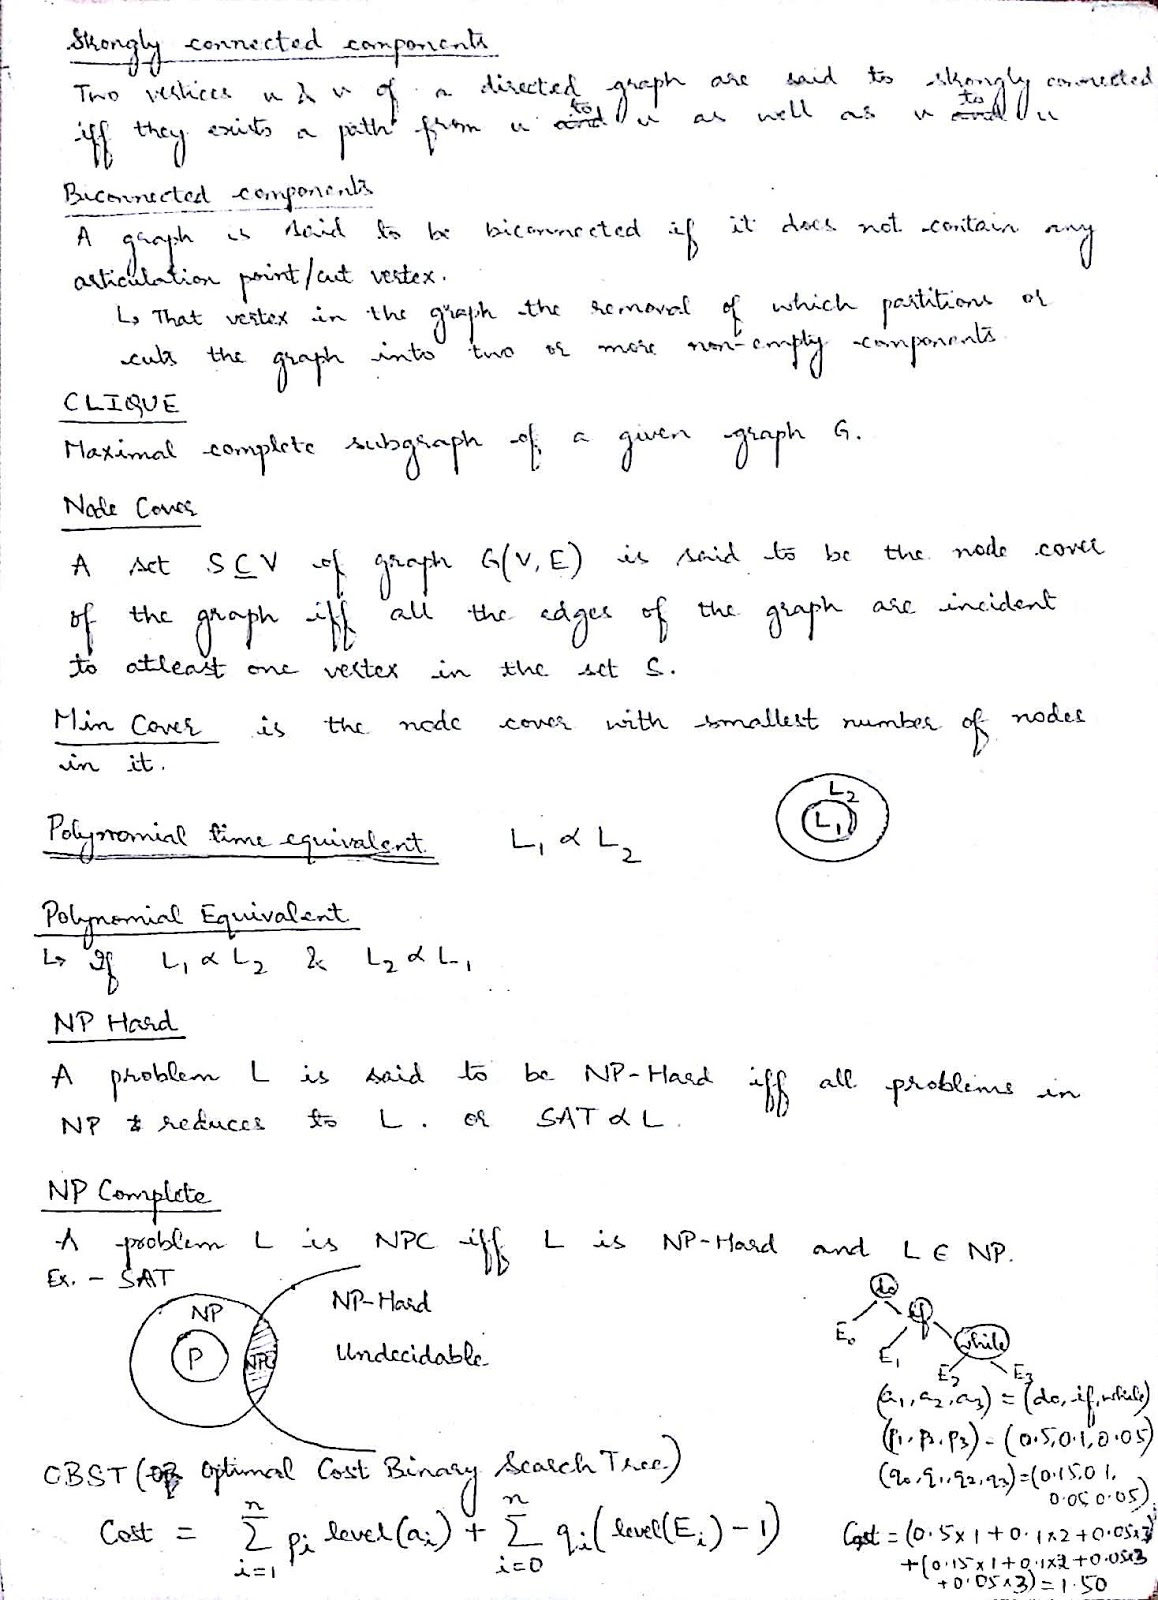 Strongly connected components
Two vertices u & v of a directed graph are said to strongly connected
iff they exists a path from u to v as well as v to u
Biconnected components
A graph is said to be biconnected if it does not contain any
articulation point/cut vertex.
↳ That vertex in the graph the removal of which partitions or
cuts the graph into two or more non-empty components
CLIQUE
Maximal complete subgraph of a given graph G.
Node Cover
A set S ⊆ V of graph G(V, E) is said to be the node cover
of the graph iff all the edges of the graph are incident
to atleast one vertex in the set S.
Min Cover is the node cover with smallest number of nodes
in it.
L2
L1
Polynomial time equivalent L1 α L2
Polynomial Equivalent
↳ If L1 α L2 & L2 α L1
NP Hard
A problem L is said to be NP-Hard iff all problems in
NP reduces to L. or SAT α L.
NP Complete
A problem L is NPC iff L is NP-Hard and L ∈ NP.
Ex. - SAT
NP
P
NPC
NP-Hard
Undecidable
do
E0 if
E1 while
E2 E3
(a1, a2, a3) = (do, if, while)
(p1, p2, p3) = (0.5, 0.1, 0.05)
(q0, q1, q2, q3) = (0.15, 0.1,
0.05 0.05)
OBST (Optimal Cost Binary Search Tree)
Cost = Σ_{i=1}^{n} pi level(ai) + Σ_{i=0}^{n} qi(level(Ei) - 1)
Cost = (0.5x1 + 0.1x2 + 0.05x3)
+ (0.15x1 + 0.1x2 + 0.05x3
+ 0.05x3) = 1.50